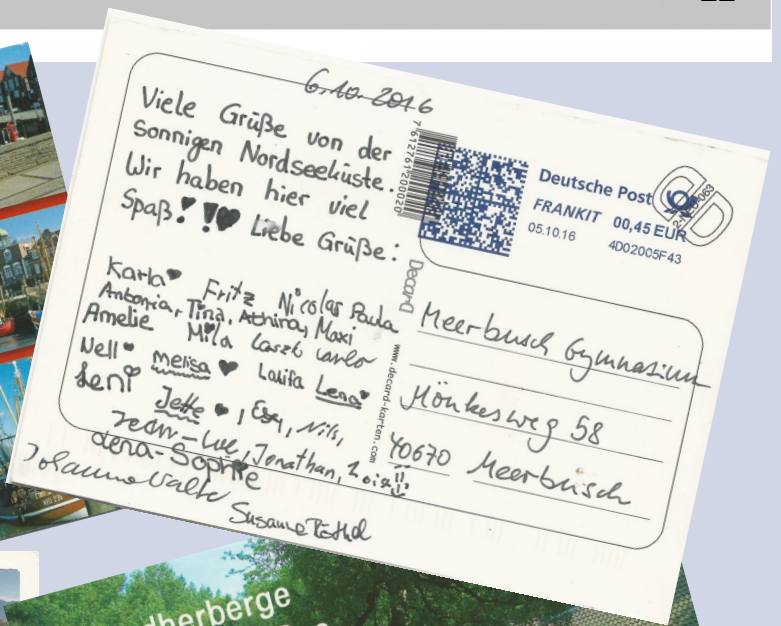 6.10.2016
Viele Grüße von der
sonnigen Nordseeküste.
Wir haben hier viel
Spaß! !! Liebe Grüße:
Karla Fritz Nicolas Paula
Antonia, Tina, Athira, Maxi
Amelie Mila Laszt Carlo
Nell Melisa Latifa Lena
Leni Jette, Esra, Nils,
Jean-Luc, Jonathan, Loisa!!
Lena-Sophie
Johanna
Susanne
7612761200020
Deutsche Post
FRANKIT 00,45 EUR
05.10.16 4D02005F43
Decard
www.decard-karten.com
Meerbusch Gymnasium
Mönkesweg 58
40670 Meerbusch
dherberge